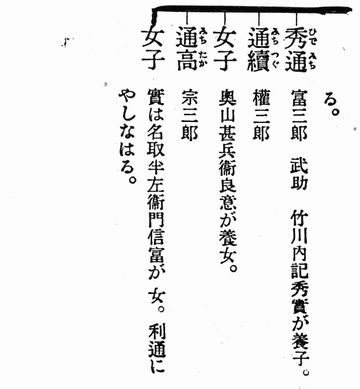 る。
秀通 富三郎 武助 竹川内記秀實が養子。
ひで みち
通續 權三郎
みち つぐ
女子 奧山甚兵衞良意が養女。
通高 宗三郎
みち たか
女子 實は名取半左衞門信富が女。利通に
やしなはる。